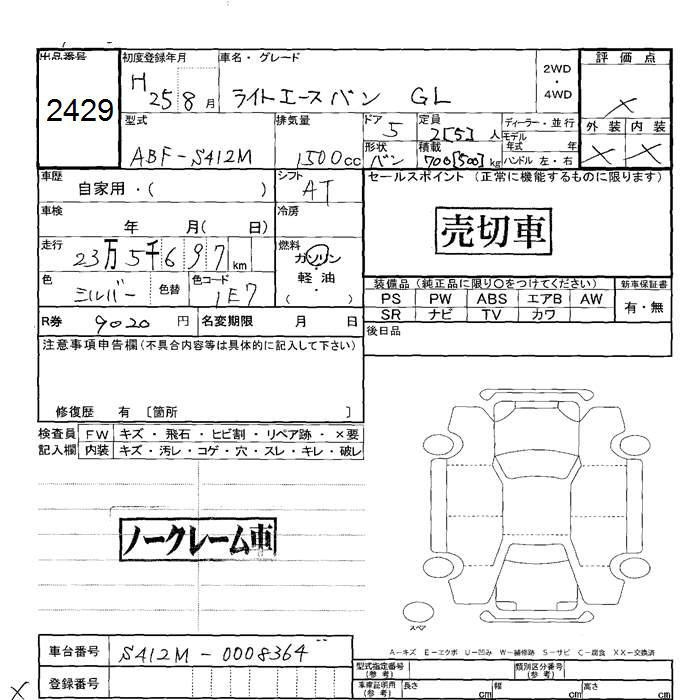 出品番号 初度登録年月 車名・グレード 評価点
2429 H 25 8月 ライトエースバン GL 2WD・4WD ×
型式 排気量 ドア 定員 ディーラー・並行 外装 内装
ABF-S412M 1500cc 5 2[5]人 モデル年式 年 × ×
形状 バン 積載 700[500]kg ハンドル 左・右
車歴 自家用・( ) シフト AT セールスポイント(正常に機能するものに限ります)
車検 年 月( 日) 冷房
売切車
走行 23万5千697km 燃料 ガソリン
軽・油
( )
色 シルバー 色替 色コード 1E7
装備品(純正品に限り○をつけてください) 新車保証書
PS PW ABS エアB AW 有・無
SR ナビ TV カワ
R券 9020円 名変期限 月 日
後日品
注意事項申告欄(不具合内容等は具体的に記入して下さい)
修復歴 有 〔箇所 〕
検査員 FW キズ・飛石・ヒビ割・リペア跡・×要
記入欄 内装 キズ・汚レ・コゲ・穴・スレ・キレ・破レ
ノークレーム車
スペア
A-キズ E-エクボ U-凹み W-補修跡 S-サビ C-腐食 XX-交換済
車台番号 S412M-0008364
型式指定番号(参考) 類別区分番号(参考)
× 登録番号
車庫証明用(参考) 長さ cm 幅 cm 高さ cm